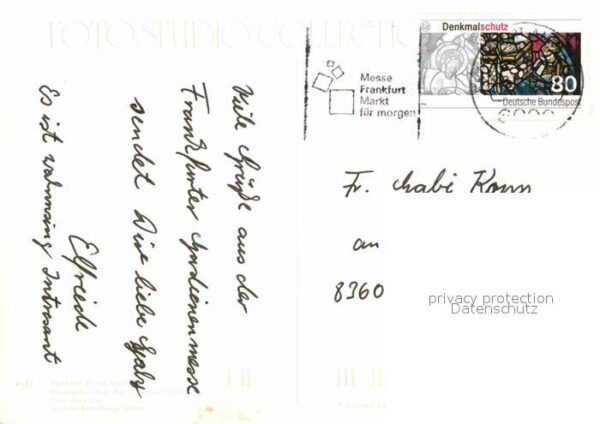 FOTOSTUDIO COLLECTION
Denkmalschutz
80
Deutsche Bundespost
Messe
Frankfurt
Markt
für morgen
Viele Grüße aus der
Frankfurter Gardienenmesse
sendet Dir liebe Gaby
Elfriede
Es ist wahnsinig Intresant
Fr. Gabi
an
8360
privacy protection
Datenschutz
FRANKFURT AM
Published by